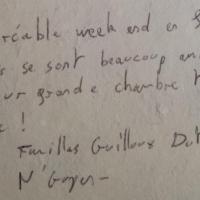 éable week end en
se sont beaucoup am
ur grande chambre
!
Familles Guilloux Du
N'Guyen -